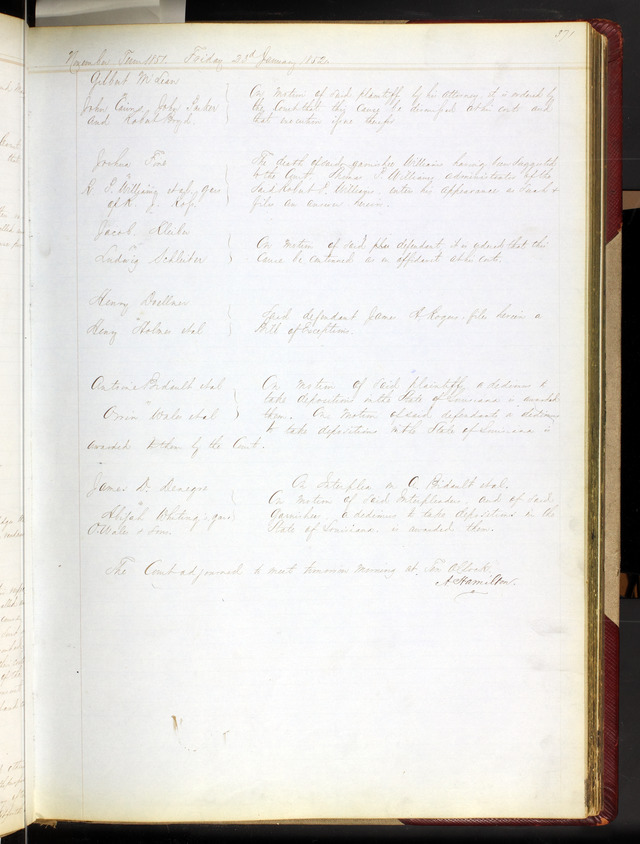 371
November Term 1851. Friday 23d January 1852.
Gilbert McLean
vs
John Cairns, John Parker
and Robert Boyd
On motion of said plaintiff by his attorney, it is ordered by
the Court that this cause be dismissed at his costs and
that execution issue therefor
Joshua
R. P. Williams et al, garn
of R
The death of garnishee Williams having been suggested
to the Court, Thomas P. Williams, administrator of the
said Robert P. Williams, enters his appearance as such &
files an answer herein.
Jacob
vs
Ludwig Schleiter
On motion of said defendant, it is ordered that this
cause be continued as on affidavit at his costs.
Henry Doellner
vs
Henry Holmes et al
Said defendant James A. Rogers files herein a
Bill of Exceptions.
Antoine Bidault et al
vs
Orrin Wales et al
On motion of said plaintiffs a dedimus to
take depositions in the State of Louisiana is awarded
them. On motion of said defendants a dedimus
to take depositions in the State of Louisiana is
awarded to them by the Court.
James D. Denegre
vs
Abijah Whiting garn
O. Wales & Son.
On Interplea in A. Bidault et al.
On motion of said Interpleader, and of said
Garnishee, a dedimus to take depositions in the
State of Louisiana is awarded them.
The Court adjourned to meet tomorrow morning at Ten O'Clock.
A Hamilton.